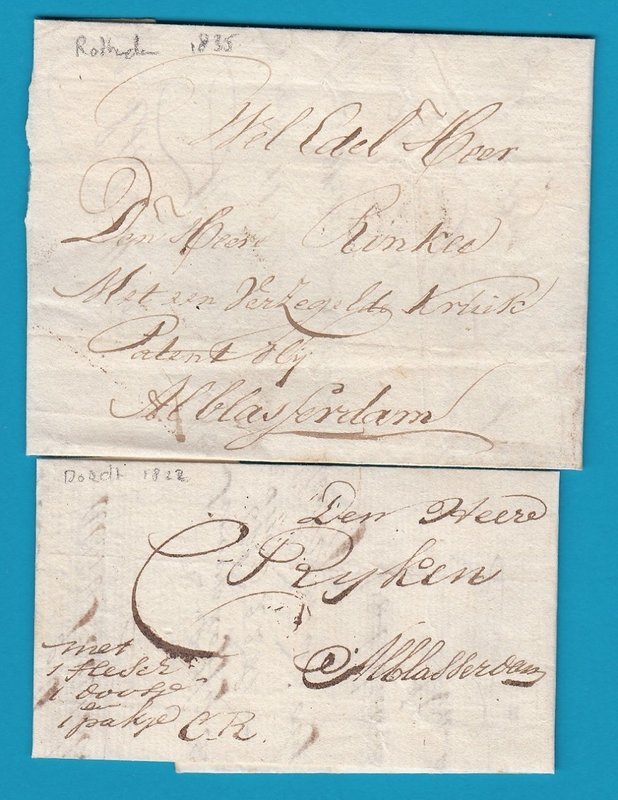 Rotterdam 1835
Wel Edel Heer
Den Heere Rinkes
Met een Verzegelde Kruik
Patent Oly
Alblasserdam
Dordt 1822
Den Heere
C Ryken
Alblasserdam
met
1 flesch
1 doosje
en
1 pakje C.R.